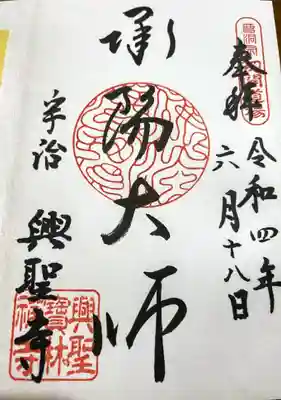 奉拝 令和四年
六月十八日
承陽大師
宇治 興聖寺
興聖
寶林
禅寺